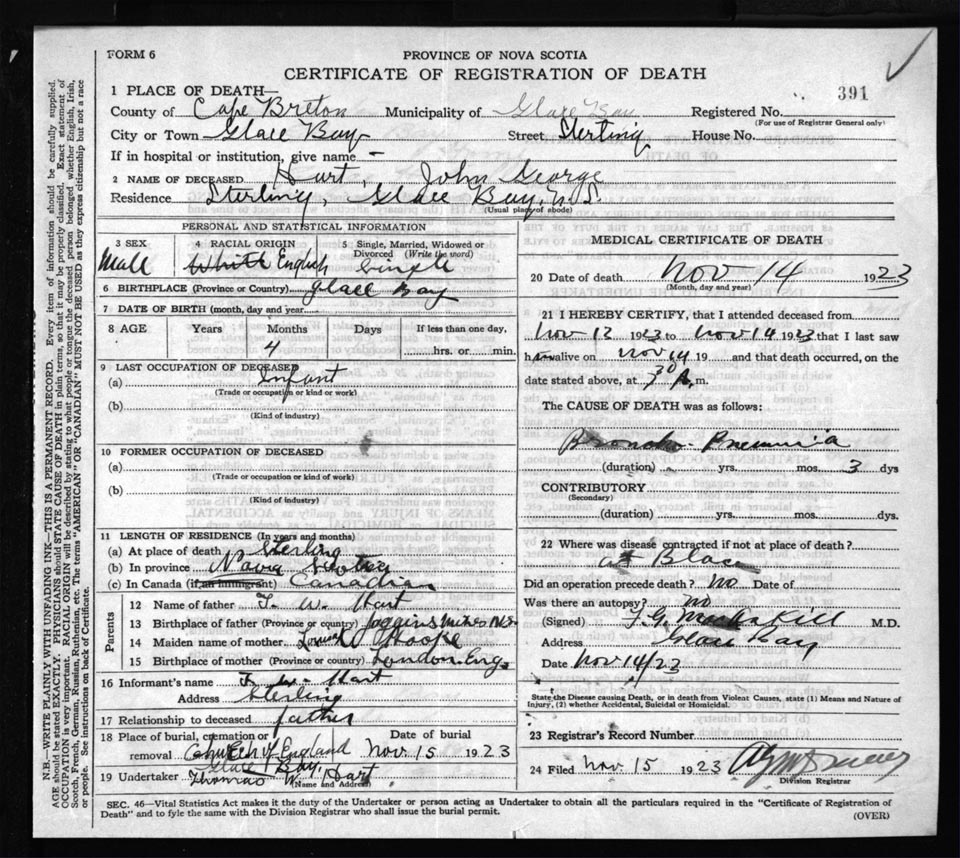 FORM 6
PROVINCE OF NOVA SCOTIA
CERTIFICATE OF REGISTRATION OF DEATH
391
1 PLACE OF DEATH—
County of Cape Breton Municipality of Glace Bay Registered No.
(For use of Registrar General only)
City or Town Glace Bay Street Sterling House No.
If in hospital or institution, give name —
2 NAME OF DECEASED Hart, John George
Residence Sterling, Glace Bay, N.S.
(Usual place of abode)
PERSONAL AND STATISTICAL INFORMATION
3 SEX
Male
4 RACIAL ORIGIN
White English
5 Single, Married, Widowed or Divorced (Write the word)
Single
6 BIRTHPLACE (Province or Country) Glace Bay
7 DATE OF BIRTH (month, day and year)
8 AGE Years Months Days If less than one day,
4 hrs. or min.
9 LAST OCCUPATION OF DECEASED
(a) Infant
(Trade or occupation or kind or work)
(b)
(Kind of industry)
10 FORMER OCCUPATION OF DECEASED
(a)
(Trade or occupation or kind of work)
(b)
(Kind of industry)
11 LENGTH OF RESIDENCE (In years and months)
(a) At place of death Sterling
(b) In province Nova Scotia
(c) In Canada (if an immigrant) Canadian
Parents
12 Name of father T. W. Hart
13 Birthplace of father (Province or country) Joggins Mines N.S.
14 Maiden name of mother
15 Birthplace of mother (Province or country) London Eng.
16 Informant's name T. W. Hart
Address Sterling
17 Relationship to deceased father
18 Place of burial, cremation or removal Date of burial
Church of England Nov 15 1923
Glace Bay
19 Undertaker Thomas W. Hart
(Name and Address)
MEDICAL CERTIFICATE OF DEATH
20 Date of death Nov 14 1923
(Month, day and year)
21 I HEREBY CERTIFY, that I attended deceased from
Nov 12 1923 to Nov 14 1923 that I last saw
him alive on Nov 14 19 and that death occurred, on the
date stated above, at 7 30 A. m.
The CAUSE OF DEATH was as follows:
Broncho Pneumonia
(duration) yrs. mos. 3 dys
CONTRIBUTORY
(Secondary)
(duration) yrs. mos. dys.
22 Where was disease contracted if not at place of death?
at Place
Did an operation precede death? No Date of
Was there an autopsy? no
(Signed) M.D.
Address Glace Bay
Date Nov 14/23
State the Disease causing Death, or in death from Violent Causes, state (1) Means and Nature of
Injury, (2) whether Accidental, Suicidal or Homicidal.
23 Registrar's Record Number
24 Filed Nov 15 1923
Division Registrar
SEC. 46—Vital Statistics Act makes it the duty of the Undertaker or person acting as Undertaker to obtain all the particulars required in the "Certificate of Registration of
Death" and to fyle the same with the Division Registrar who shall issue the burial permit.
(OVER)
N.B.—WRITE PLAINLY WITH UNFADING INK—THIS IS A PERMANENT RECORD. Every item of information should be carefully supplied.
AGE should be stated EXACTLY. PHYSICIANS should STATE CAUSE OF DEATH in plain terms, so that it may be properly classified. Exact statement of
OCCUPATION is very important. RACIAL ORIGIN will be described by stating to what people or tongue the deceased person belonged whether English, Irish,
Scotch, French, German, Russian, Ruthenian, etc. The terms "AMERICAN" OR "CANADIAN" MUST NOT BE USED as they express citizenship but not a race
or people. See instructions on back of Certificate.